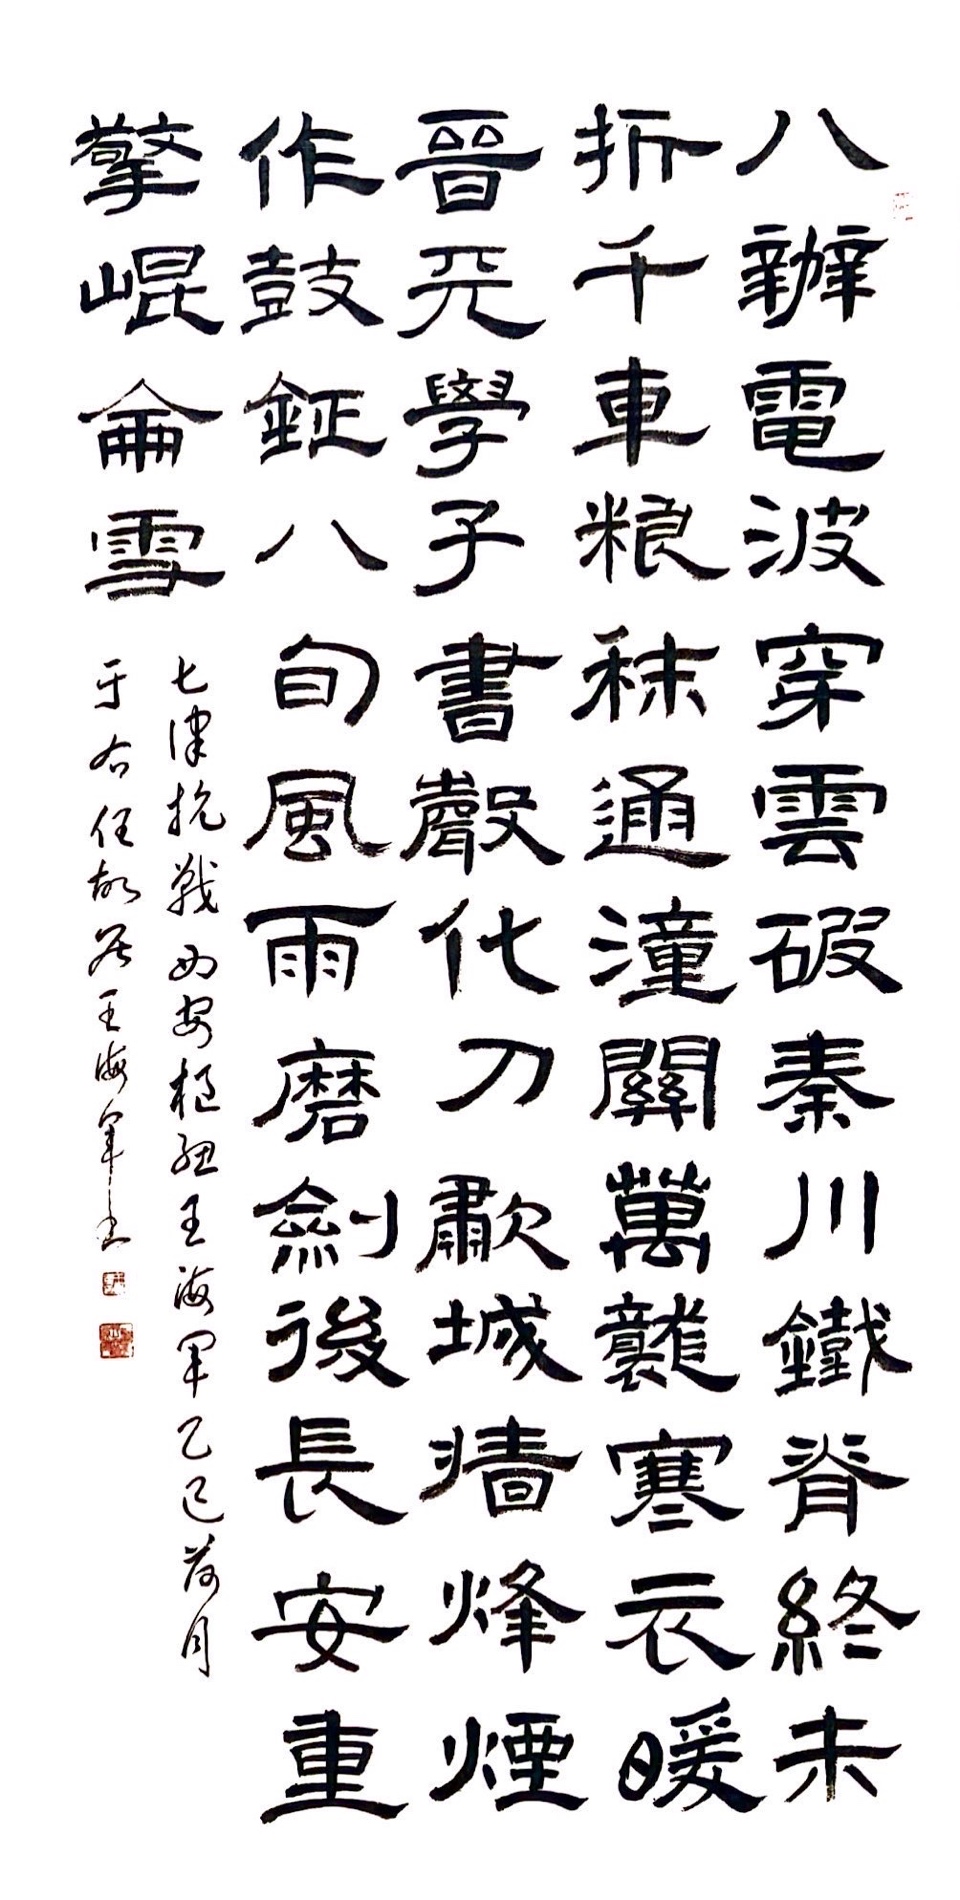 八辦電波穿雲破秦川鐵脊終未
折千車粮秣通潼關萬襲寒衣暖
晉元學子書聲化刀歗城墻烽煙
作鼓鉦八旬風雨磨劍後長安重
擎崐侖雪
七律抗戰西安樞紐王海軍乙巳荷月
于右任故居王海軍書